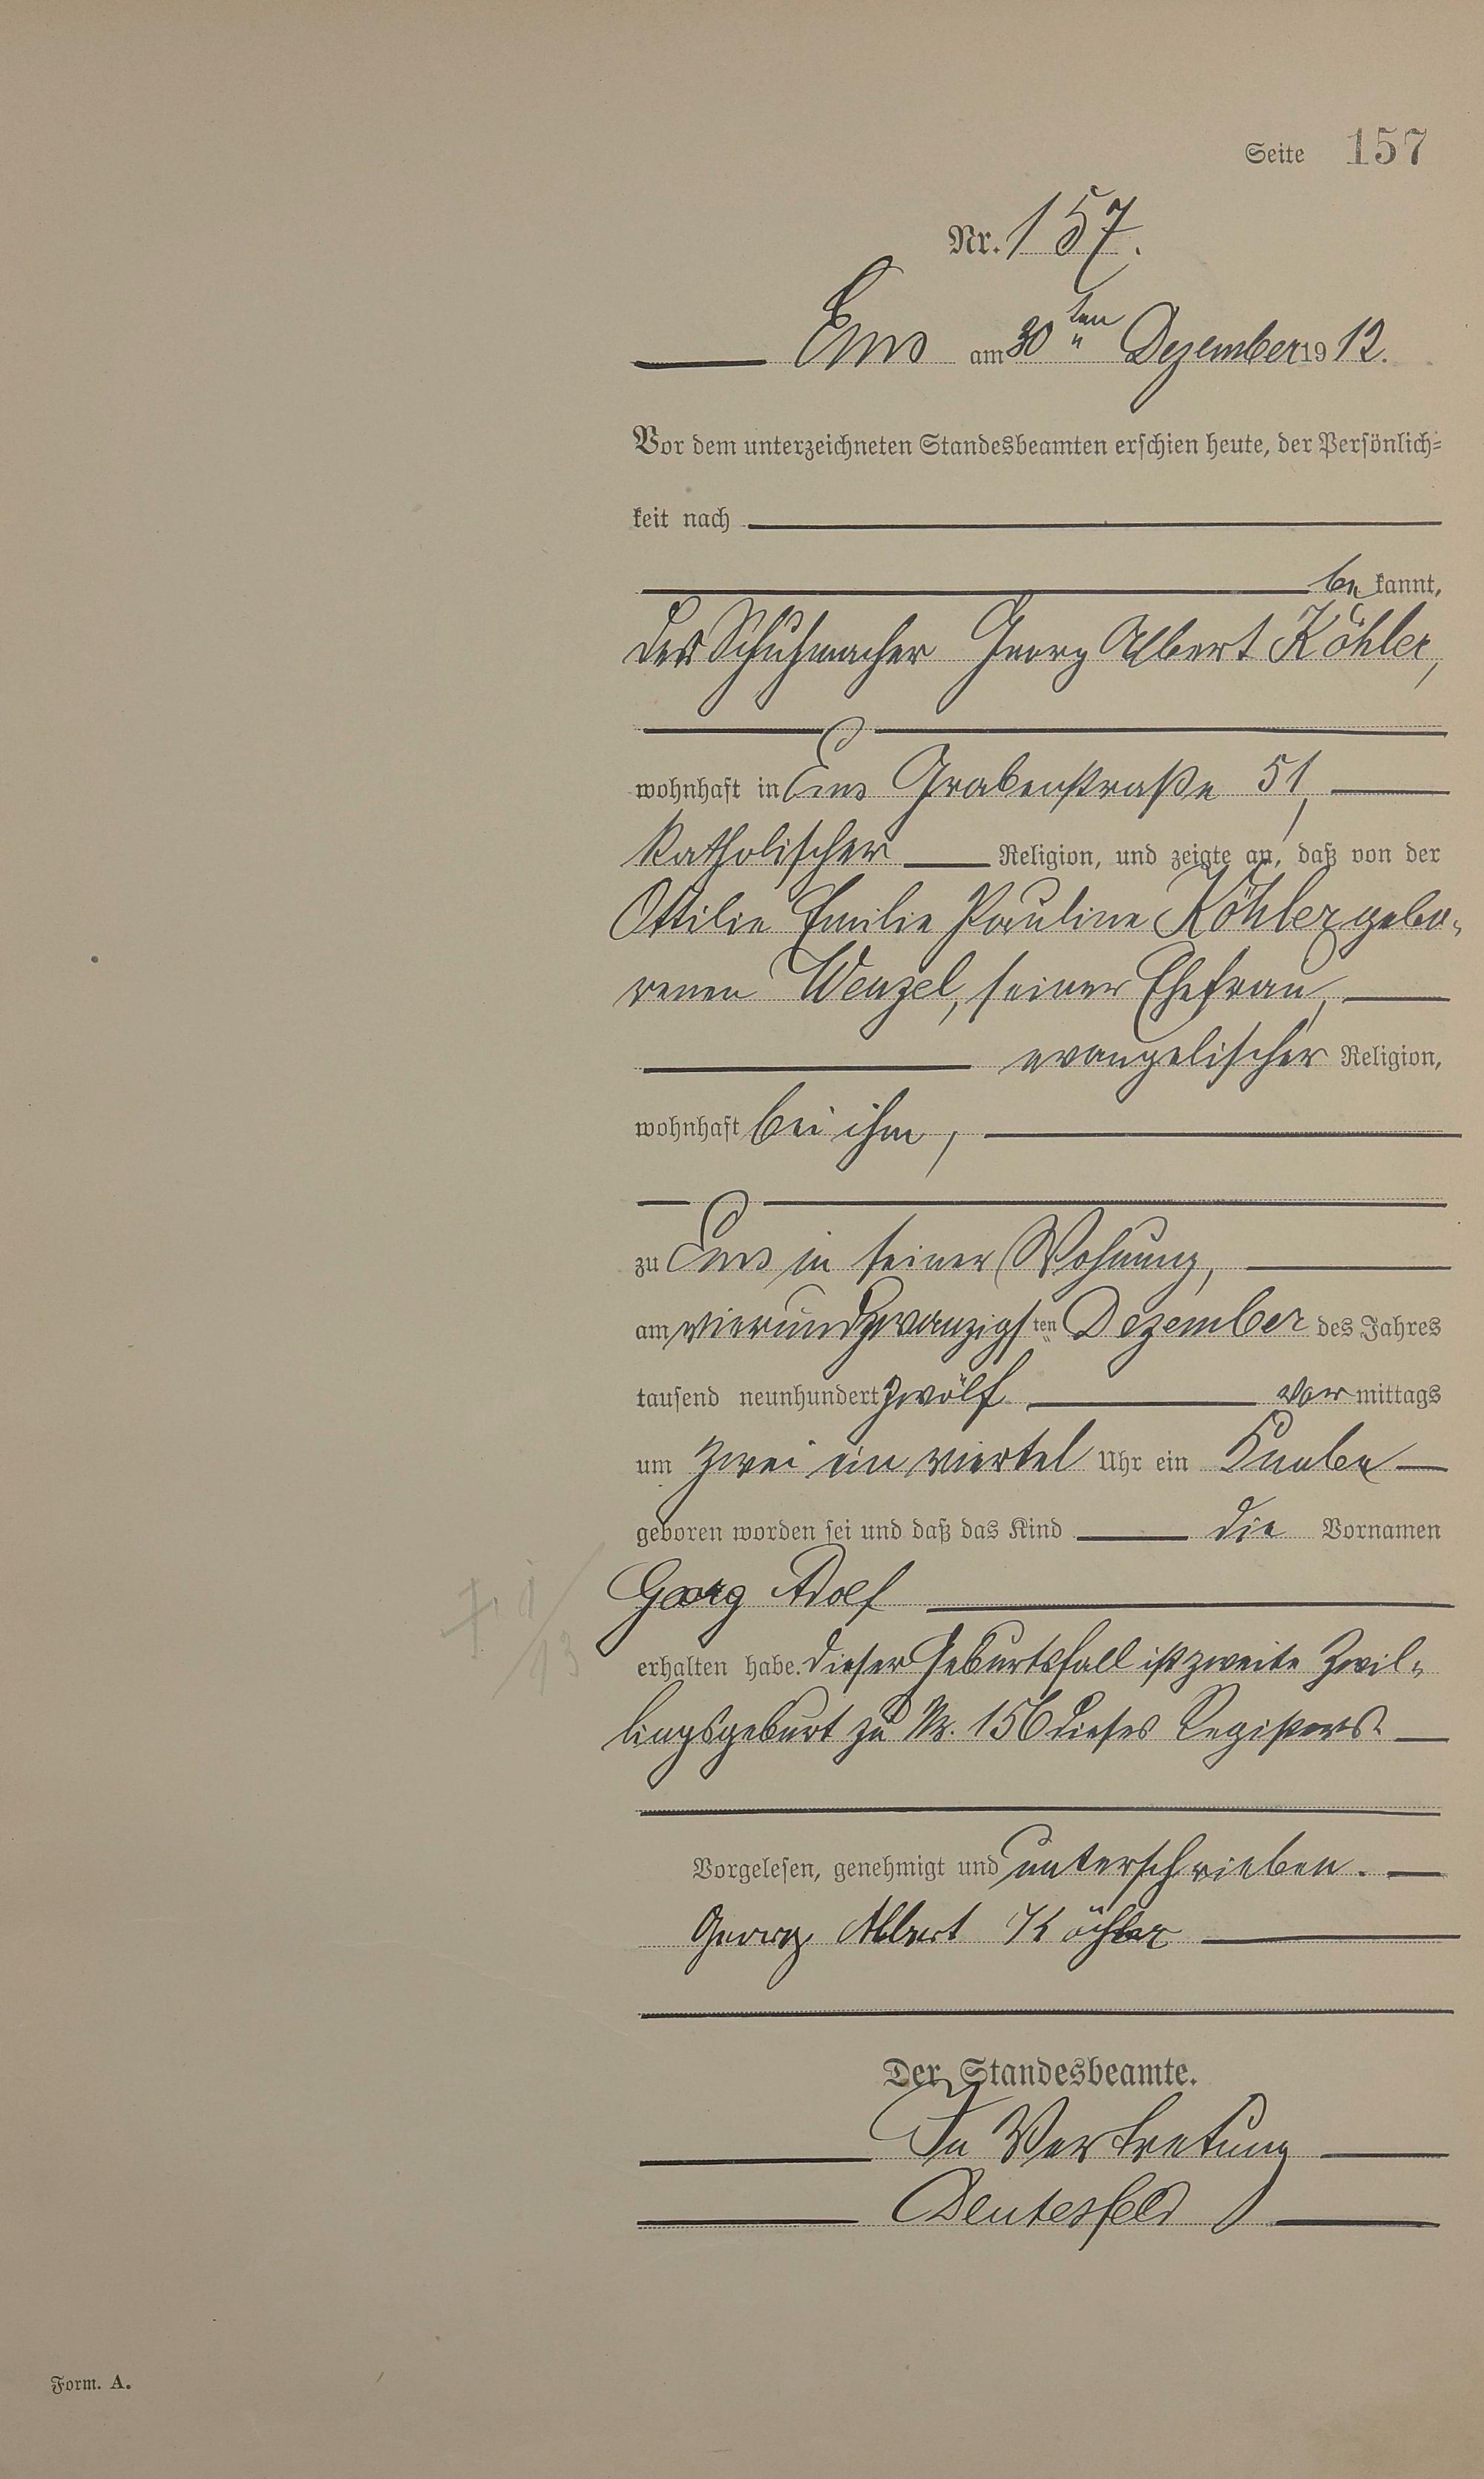 Seite 157
Nr. 157.
Ems am 30ten Dezember 1912.
Vor dem unterzeichneten Standesbeamten erschien heute, der Persönlich-
keit nach
bekannt,
der Schuhmacher Georg Albert Köhler,
wohnhaft in Ems Grabenstraße 51,
katholischer Religion, und zeigte an, daß von der
Ottilie Emilie Pauline Köhler gebo-
renen Wenzel, seiner Ehefrau,
evangelischer Religion,
wohnhaft bei ihm,
zu Ems in seiner Wohnung,
am vierundzwanzigsten Dezember des Jahres
tausend neunhundert zwölf vormittags
um zwei ein viertel Uhr ein Knabe
geboren worden sei und daß das Kind die Vornamen
Georg Adolf
erhalten habe. Dieser Geburtsfall ist zweite Zwil-
lingsgeburt zu Nr. 156 dieses Registers.
Vorgelesen, genehmigt und unterschrieben.
Georg Albert Köhler
Der Standesbeamte.
In Vertretung
Deutesfeld
Form. A.